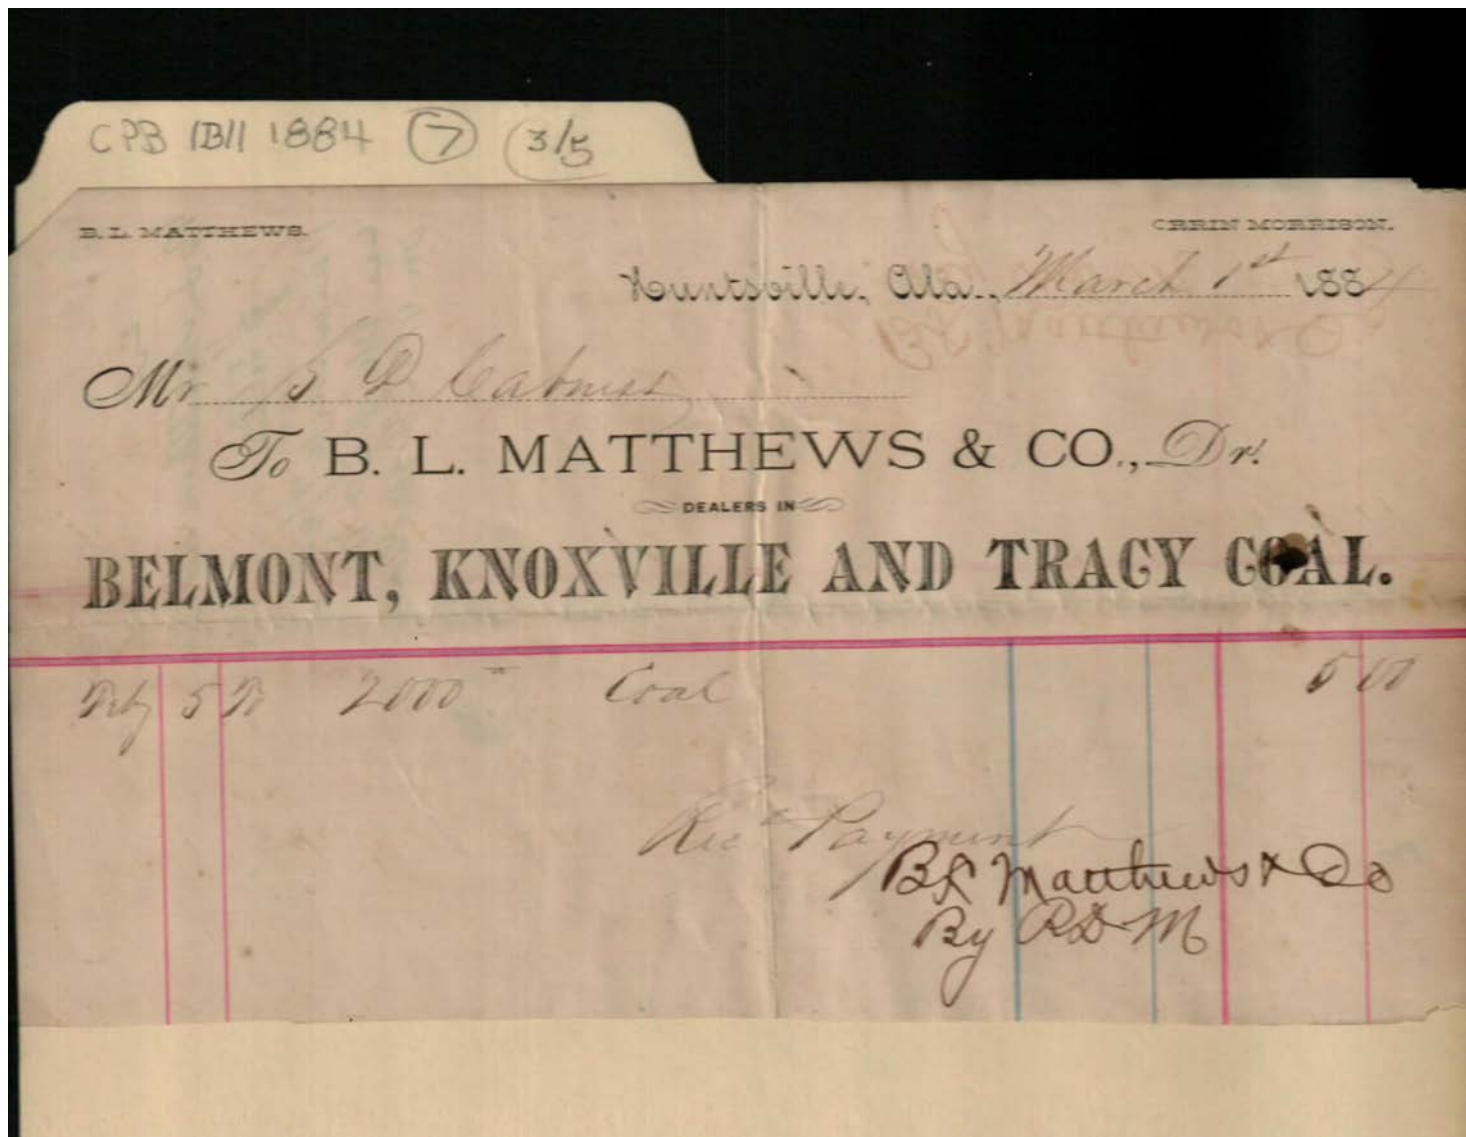 CPB 1B11 1884 7 3/5
B. L. MATTHEWS.
ORRIN MORRISON.
Huntsville, Ala., March 1st 1884
Mr S D Cabniss
To B. L. MATTHEWS & CO., Dr.
DEALERS IN
BELMONT, KNOXVILLE AND TRACY COAL.
Feby 5 To 2000 Coal 5 00
Recd Payment
BL Matthews & Co
By RDM